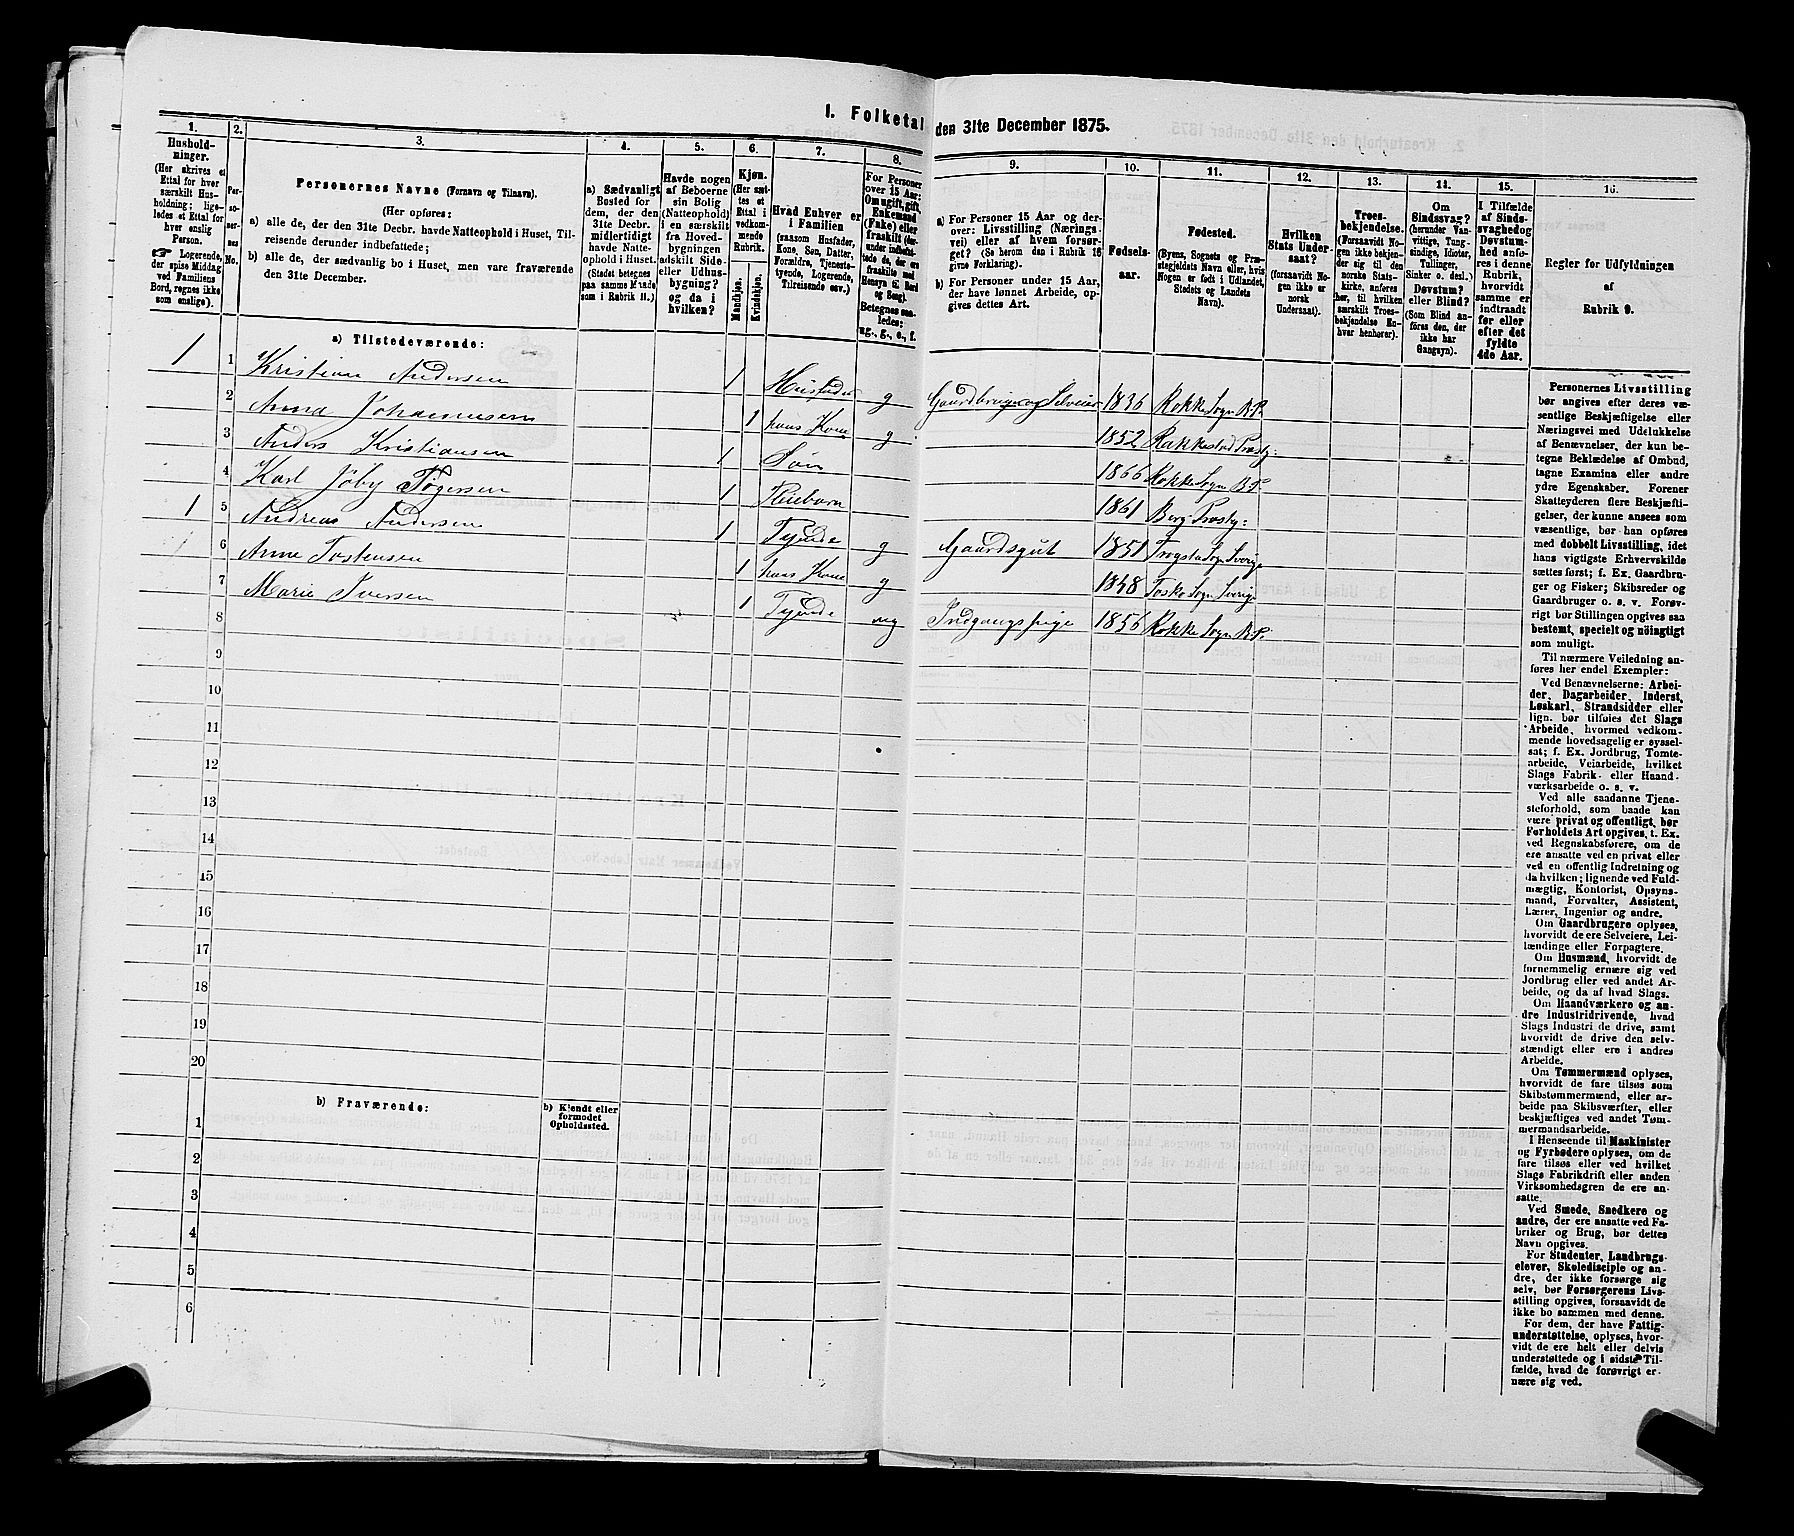 I. Folketal den 31te December 1875.
1. 2. 3. 4. 5. 6. 7. 8. 9. 10. 11. 12. 13. 14. 15. 16.
Hushold-
ninger.
(Her skrives et
Ettal for hver
særskilt Hus-
holdning; lige-
ledes et Ettal for
hver enslig
Person.
☛ Logerende,
der spise Middag
ved Familiens
Bord, regnes ikke
som enslige).
Per-
so-
ner-
nes
No.
Personernes Navne (Fornavn og Tilnavn).
(Her opføres:
a) alle de, der den 31te Decbr. havde Natteophold i Huset, Til-
reisende derunder indbefattede;
b) alle de, der sædvanlig bo i Huset, men vare fraværende
den 31te December.
a) Sædvanligt
Bosted for
dem, der den
31te Decbr.
midlertidigt
havde Natte-
ophold i Huset.
(Stedet betegnes
paa samme Maade
som i Rubrik 11.)
Havde nogen
af Beboerne
sin Bolig
(Natteophold)
i en særskilt
fra Hoved-
bygningen
adskilt Side-
eller Udhus-
bygning?
og da i
hvilken?
Kjøn.
(Her sæt-
tes et
Ettal i
vedkom-
mende
Rubrik.
Mandkjøn.
Kvindekjøn.
Hvad Enhver er
i Familien
(saasom Husfader,
Kone, Søn, Datter,
Forældre, Tjeneste-
tyende, Logerende,
Tilreisende osv.)
For Personer
over 15 Aar:
Om ugift, gift,
Enkemand
(Enke) eller
fraskilt (der-
under indbefat-
tede de, der ere
fraskilte med
Hensyn til Bord
og Seng).
Betegnes saa-
ledes:
ug., g., e., f.
a) For Personer 15 Aar og der-
over: Livsstilling (Nærings-
vei) eller af hvem forsør-
get? (Se herom den i Rubrik 16
givne Forklaring).
b) For Personer under 15 Aar,
der have lønnet Arbeide, op-
gives dettes Art.
Fødsels-
aar.
Fødested.
(Byens, Sognets og Præ-
stegjeldets Navn eller, hvis
Nogen er født i Udlandet,
Stedets og Landets
Navn).
Hvilken
Stats Under-
saat?
(forsaavidt No-
gen ikke er
norsk
Undersaat).
Troes-
bekjendelse.
(Forsaavidt No-
gen ikke bekjen-
der sig til den
norske Stats-
kirke, anføres
her, til hvilken
særskilt Troes-
bekjendelse En-
hver henhører).
Om
Sindssvag?
(herunder Van-
vittige, Tung-
sindige, Idioter,
Tullinger,
Sinker o. desl.)
Døvstum?
eller Blind?
(Som Blind an-
føres den, der
ikke har
Gangsyn).
I Tilfælde
af Sinds-
svaghed og
Døvstum-
hed anfø-
res i denne
Rubrik,
hvorvidt
samme er
indtraadt
før eller
efter det
fyldte
4de Aar.
Regler for Udfyldningen
af
Rubrik 9.
a) Tilstedeværende:
1 1 Kristian Andersen 1 Husfader g Gaardbruger og Selveier 1836 Rokke Sogn B.P.
2 Anna Johannesen 1 hans Kone g 1852 Rakkestad Præstg:
3 Anders Kristiansen 1 Søn 1866 Rokke Sogn B.P.
4 Karl Joby Tøgersen 1 Pleiebarn 1861 Berg Præstg:
1 5 Andreas Andersen 1 Tyende g Gaardsgut 1851 Trogstad Sogn Sverige
6 Anne Tostensen 1 hans Kone g 1848 Foske Sogn Sverige
7 Marie Iversen 1 Tyende ug Indgangspige 1856 Rokke Sogn B.P.
8
9
10
11
12
13
14
15
16
17
18
19
20
b) Fraværende:
b) Kjendt eller
formodet
Opholdssted.
1
2
3
4
5
6
Personernes Livsstilling
bør angives efter deres væ-
sentlige Beskjæftigelse eller
Næringsvei med Udelukkelse
af Benævnelser, der kun be-
tegne Beklædelse af Ombud,
tagne Examina eller andre
ydre Egenskaber. Forener
Skatteyderen flere Beskjæfti-
gelser, der kunne ansees som
væsentlige, bør han opføres
med dobbelt Livsstilling, idet
hans vigtigste Erhvervskilde
sættes først; f. Ex. Gaardbru-
ger og Fisker; Skibsreder og
Gaardbruger o. s. v. Forøv-
rigt bør Stillingen opgives saa
bestemt, specielt og nöiagtigt
som muligt.
Til nærmere Veiledning an-
føres her endel Exempler:
Ved Benævnelserne: Arbei-
der, Dagarbeider, Inderst,
Løskarl, Strandsidder eller
lign. bør tilføies det Slags
Arbeide, hvormed vedkom-
mende hovedsagelig er syssel-
sat; f. Ex. Jordbrug, Tomte-
arbeide, Veiarbeide, hvilket
Slags Fabrik- eller Haand-
værksarbeide o. s. v.
Ved alle saadanne Tjene-
steforhold, som baade kan
være privat og offentligt, bør
Forholdets Art opgives, t. Ex.
ved Regnskabsførere, om de
ere ansatte ved en privat eller
ved en offentlig Indretning og
da hvilken; lignende ved Fuld-
mægtig, Kontorist, Opsyns-
mand, Forvalter, Assistent,
Lærer, Ingeniør og andre.
Om Gaardbrugere oplyses,
hvorvidt de ere Selveiere, Lei-
lændinge eller Forpagtere.
Om Husmænd, hvorvidt de
fornemmelig ernære sig ved
Jordbrug eller ved andet Ar-
beide, og da af hvad Slags.
Om Haandværkere og an-
dre Industridrivende, hvad
Slags Industri de drive, samt
hvorvidt de drive den selv-
stændigt eller ere i andres
Arbeide.
Om Tømmermænd oplyses,
hvorvidt de fare tilsøs som
Skibstømmermænd, eller ar-
beide paa Skibsværfter, eller
beskjæftiges ved andet Tøm-
mermandsarbeide.
I Henseende til Maskinister
og Fyrbødere oplyses, om de
fare tilsøs eller ved hvilket
Slags Fabrikdrift eller anden
Virksomhedsgren de ere an-
satte.
Ved Smede, Snedkere og
andre, der ere ansatte ved Fa-
briker og Brug, bør dettes
Navn opgives.
For Studenter, Landbrugs-
elever, Skoledisciple og an-
dre, der ikke forsørge sig
selv, bør Forsørgerens Livs-
stilling opgives, forsaavidt de
ikke bo sammen med denne.
For dem, der have Fattig-
understøttelse, oplyses, hvor-
vidt de ere helt eller delvis
understøttede og i sidste Til-
fælde, hvad de forøvrigt er-
nære sig ved.